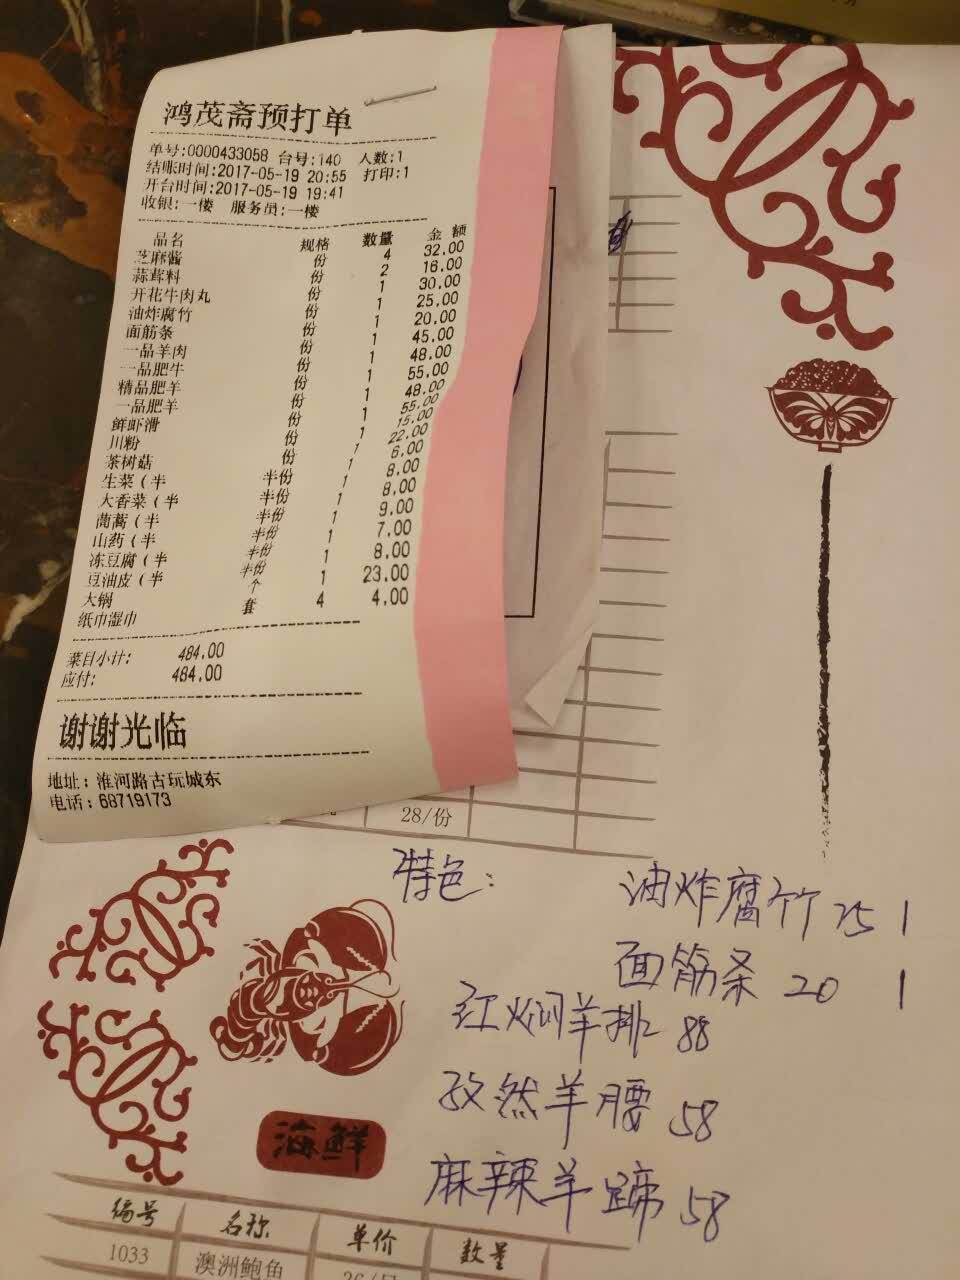 鸿茂斋预打单
单号:0000433058 台号:140 人数:1
结账时间:2017-05-19 20:55 打印:1
开台时间:2017-05-19 19:41
收银:一楼 服务员:一楼
品名 规格 数量 金额
芝麻酱 份 4 32.00
蒜茸料 份 2 16.00
开花牛肉丸 份 1 30.00
油炸腐竹 份 1 25.00
面筋条 份 1 20.00
一品羊肉 份 1 45.00
一品肥牛 份 1 48.00
精品肥羊 份 1 55.00
一品肥羊 份 1 48.00
鲜虾滑 份 1 55.00
川粉 份 1 15.00
茶树菇 份 1 22.00
生菜(半 半份 1 6.00
大香菜(半 半份 1 8.00
茼蒿(半 半份 1 8.00
山药(半 半份 1 9.00
冻豆腐(半 半份 1 7.00
豆油皮(半 半份 1 8.00
大锅 个 1 23.00
纸巾湿巾 套 4 4.00
菜目小计: 484.00
应付: 484.00
谢谢光临
地址:淮河路古玩城东
电话:68719173
28/份
特色: 油炸腐竹 25 1
面筋条 20 1
红焖羊排 88
孜然羊腰 58
麻辣羊蹄 58
海鲜
编号 名称 单价 数量
1033 澳洲鲍鱼